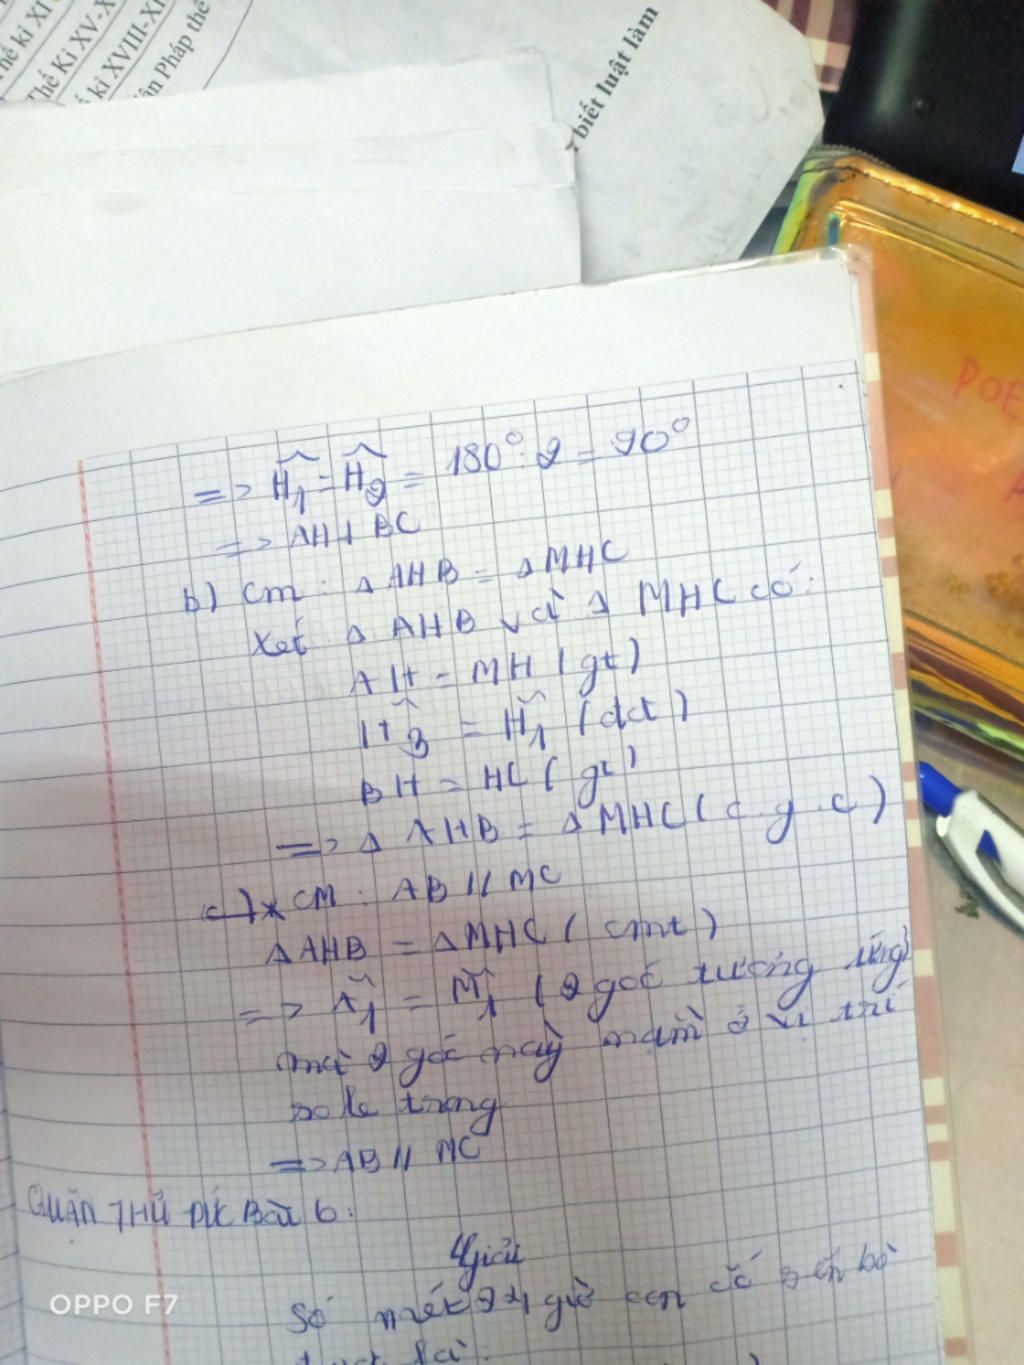 Thế kỉ XI
Thế Kỉ XV-X
ế kỉ XVIII-XI
ân Pháp thế
biết luật làm
POE
=> Ĥ₁ = Ĥ₂ = 180° : 2 = 90°
=> AH ⊥ BC
b) Cm : Δ AHB = Δ MHC
Xét Δ AHB và Δ MHC có:
AH = MH (gt)
Ĥ₃ = Ĥ₁ (dd)
BH = HC (gt)
=> Δ AHB = Δ MHC (c.g.c)
c) * CM : AB // MC
ΔAHB = ΔMHC (cmt)
=> Â₁ = M̂₁ (2 góc tương ứng)
mà 2 góc này nằm ở vị trí
so le trong
=> AB // MC
QUẬN THỦ ĐỨC Bài 6:
Giải
Số mét 24 giờ con ốc sên bò
được là:
OPPO F7